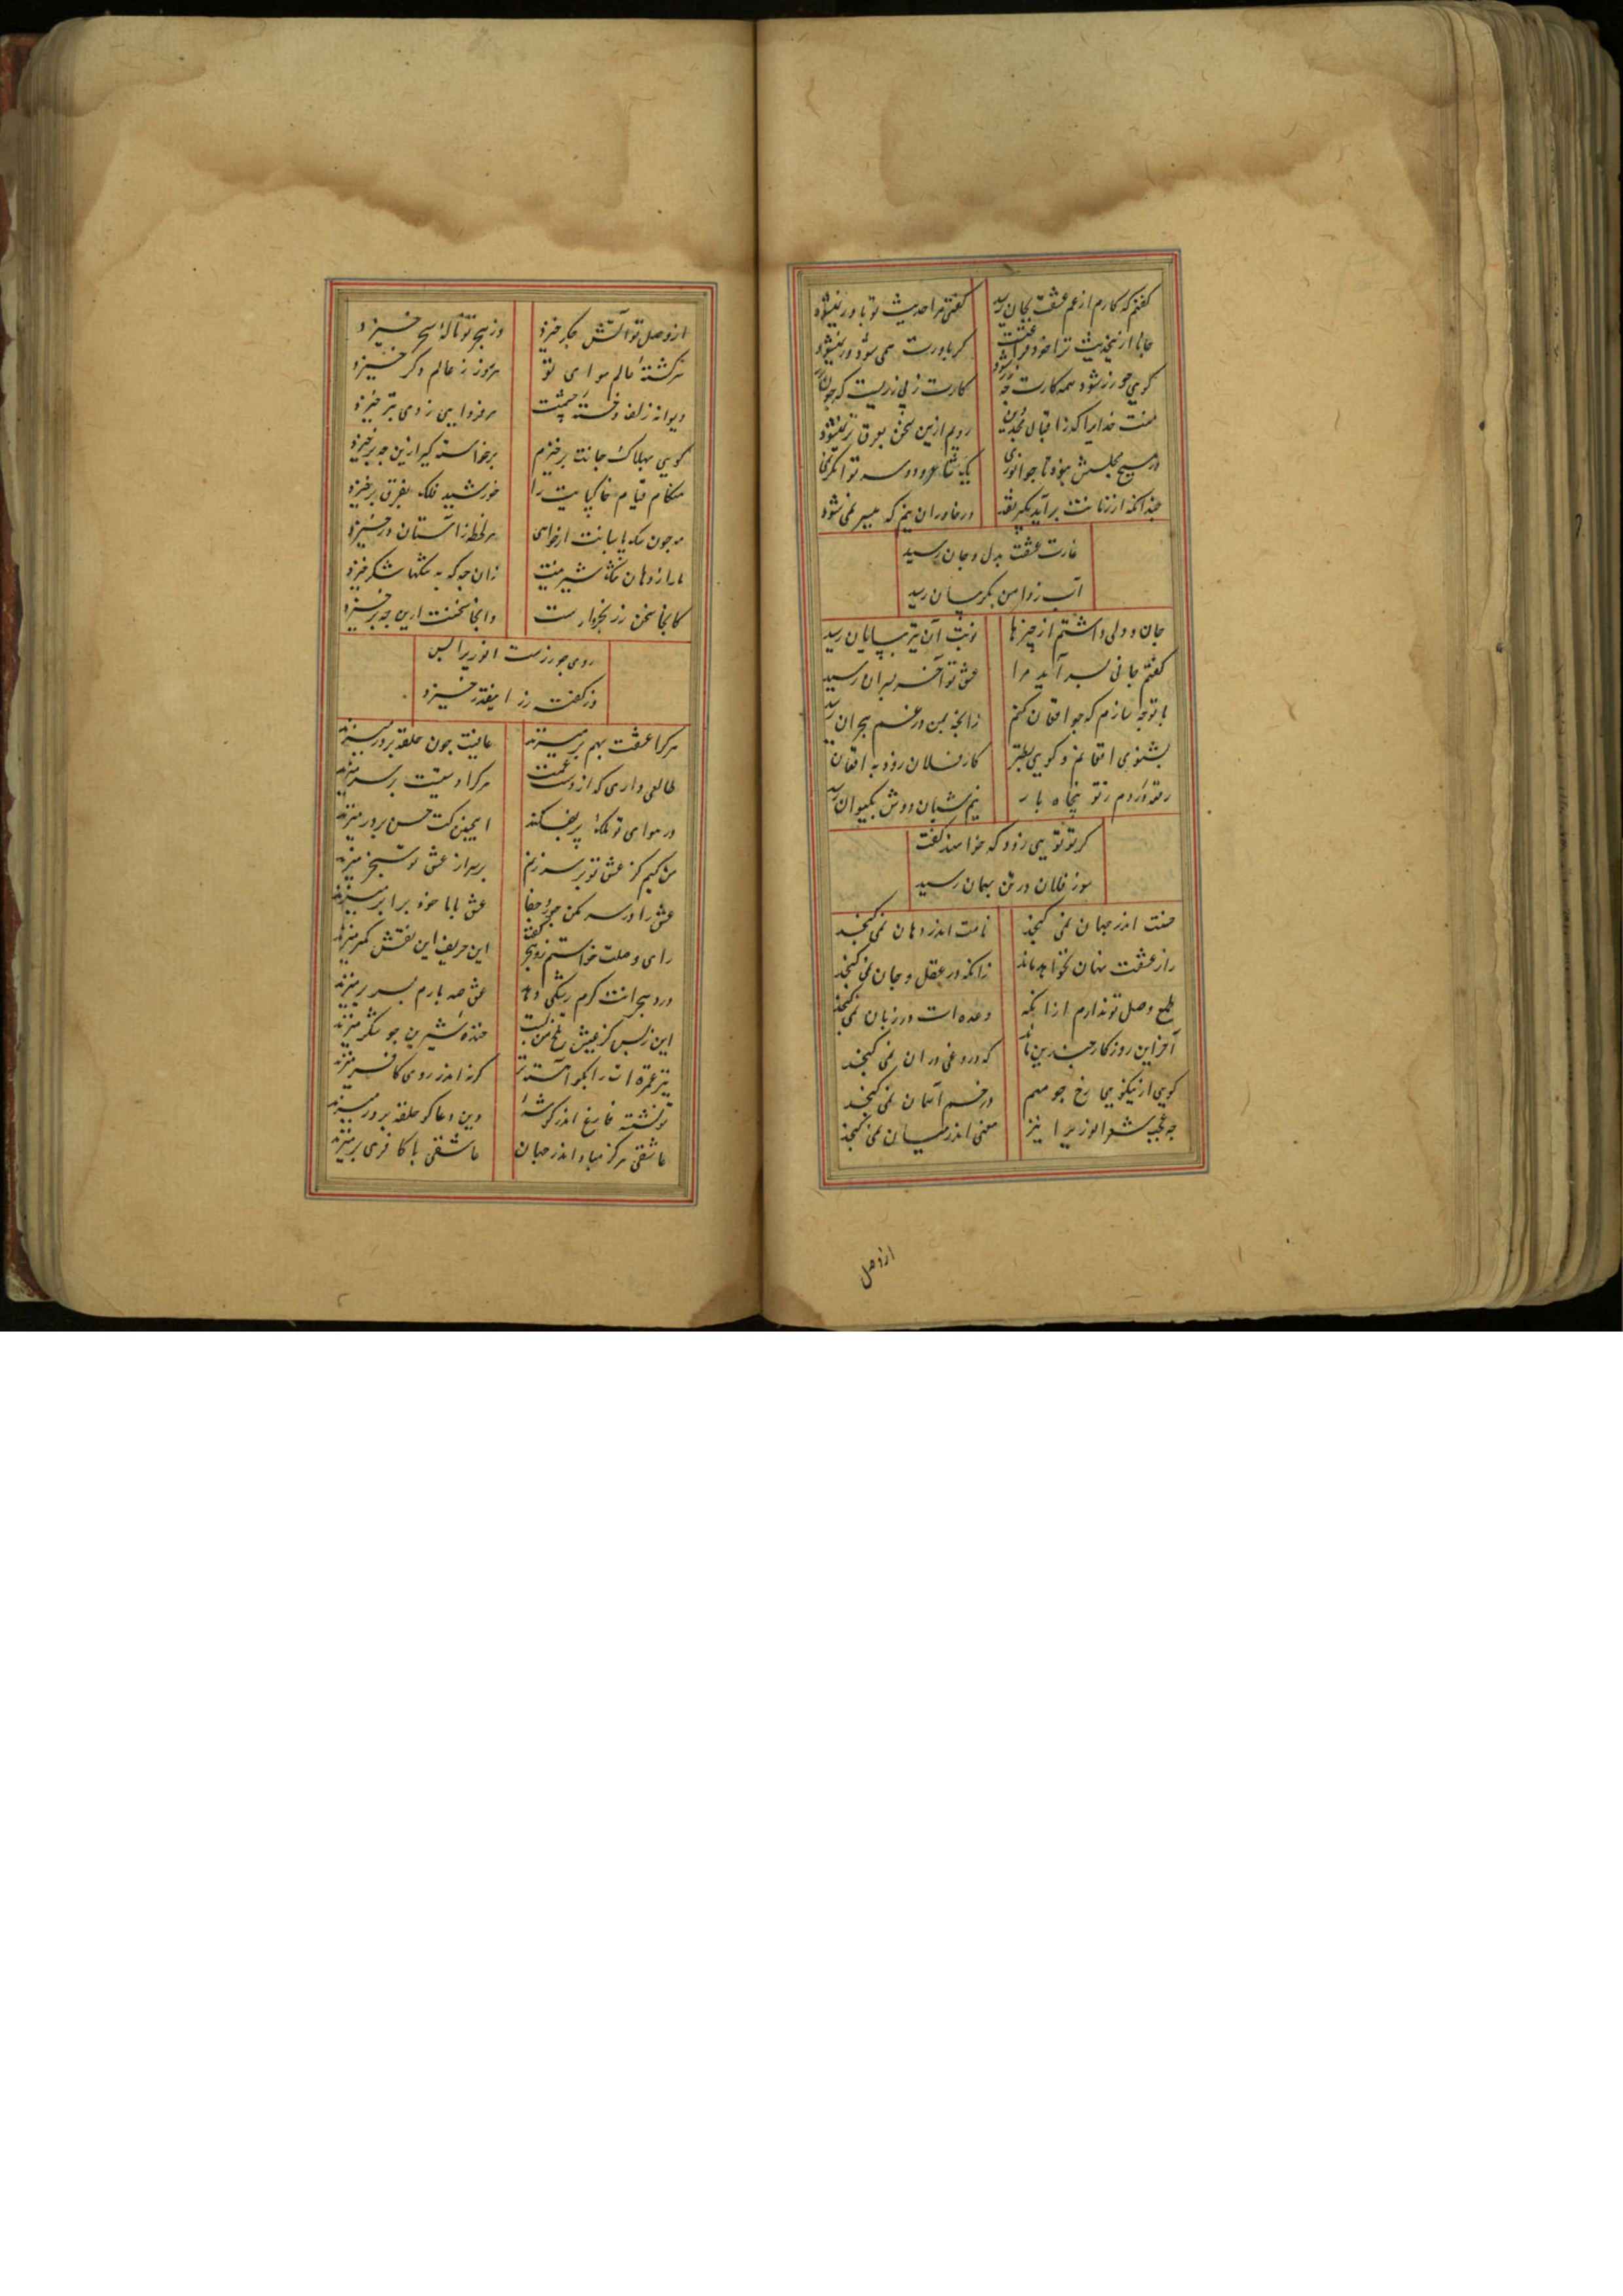 گفتم که کارم از غم عشقت بجان رسید گفتی مرا حدیث تو باور نمیشود
جانا ازین حدیث ترا خود فراغتست گر باورت همی شود ور نمیشود
گویی چو زر شود همه کارت چو زر شود کارت ز بی زریست که چون زر
منت خدایرا که ز اقبال مجددین رویم ازین سخن بعرق تر نمیشود
در هیچ مجلس نبود تا چو انوری یک شاعر و دو سه توانگر نمی
چندانکه از زمانه برآید بگیر نقد در خاوران نیم که میسر نمی شود
غارت عشقت بدل و جان رسید
آب ز دامن بگریبان رسید
جان و دلی داشتم از چیزها نوبت آن نیز بپایان رسید
گفتم جانی بسر آید مرا عشق تو آخر بسر آن رسید
با تو چه سازم که چو افغان کنم زانچه بمن در غم هجران رسید
بشنوی افغانم و گویی بطنز کار فلان زود به افغان
رقعه دردم ز تو پنجاه بار نیم شبان دوش بکیوان رسید
گر تو تویی زود که خواهند گفت
سوز فلان در تن بهمان رسید
حسنت اندر جهان نمی گنجد نامت اندر دهان نمی گنجد
راز عشقت نهان نخواهد ماند زانکه در عقل و جان نمی گنجد
طمع وصل تو ندارم ازانکه وعده ات در زبان نمی گنجد
آخر این روزگار چندین که دروغی دران نمی گنجد
گویی از نیکویی رخ چو مهم در خم آسمان نمی گنجد
چه عجب شعر انوری را نیز معنی اندر میان نمی گنجد
از وصل
از وصل تو آتش جگر خیزد وز هجر تو ناله سحر خیزد
سرگشته عالم هوای تو هر روز ز عالم دگر خیزد
دیوانه زلف و خسته چشمت هر فردایی ز دی بتر خیزد
گویی بهلاک جانت برخیزم برخاسته گیر ازین چه برخیزد
هنگام قیام خاکپایت را خورشید فلک بفرق برخیزد
مه چون سگ پاسبانت ار خواهی هر لحظه ز آستان در خیزد
ما را ز دهان تنگ شیرینت زان چه که به تنگها شکر خیزد
کانجا سخن زر بخروارست وانجا سخنست ازین چه برخیزد
روی چو زرست انوری را بس
وز گفت زر اینقدر خیزد
هر کرا عشقت بهم بر میزند عاقبت چون حلقه بر در میزند
طالعی داری که از دست غمت هر کرا دستیست بر سر میزند
در هوای تو ملک پر بفکند اینچنین کت حسن بر در میزند
من کیم کز عشق تو بر سر زنم بر سر از عشق تو سنجر میزند
عشق را در سر مکن جور و جفا عشق با ما خود برابر میزند
رای وصلت خواستم زد هجر گفت این حریف این نقش کمتر میزند
درد هجرانت کرم رنگی دهد عشق صد بارم بسر بر میزند
این نه بس کز عیش تلخ من لبت خنده شیرین چو شکر میزند
نیز غمزه ات را بگو آهسته تر گرنه اندر روی کافر میزند
تو نشسته فارغ اندر گوشه وین دعاگو حلقه بر در میزند
عاشقی هرگز مباد اندر جهان عاشقی با کافری بر میزند